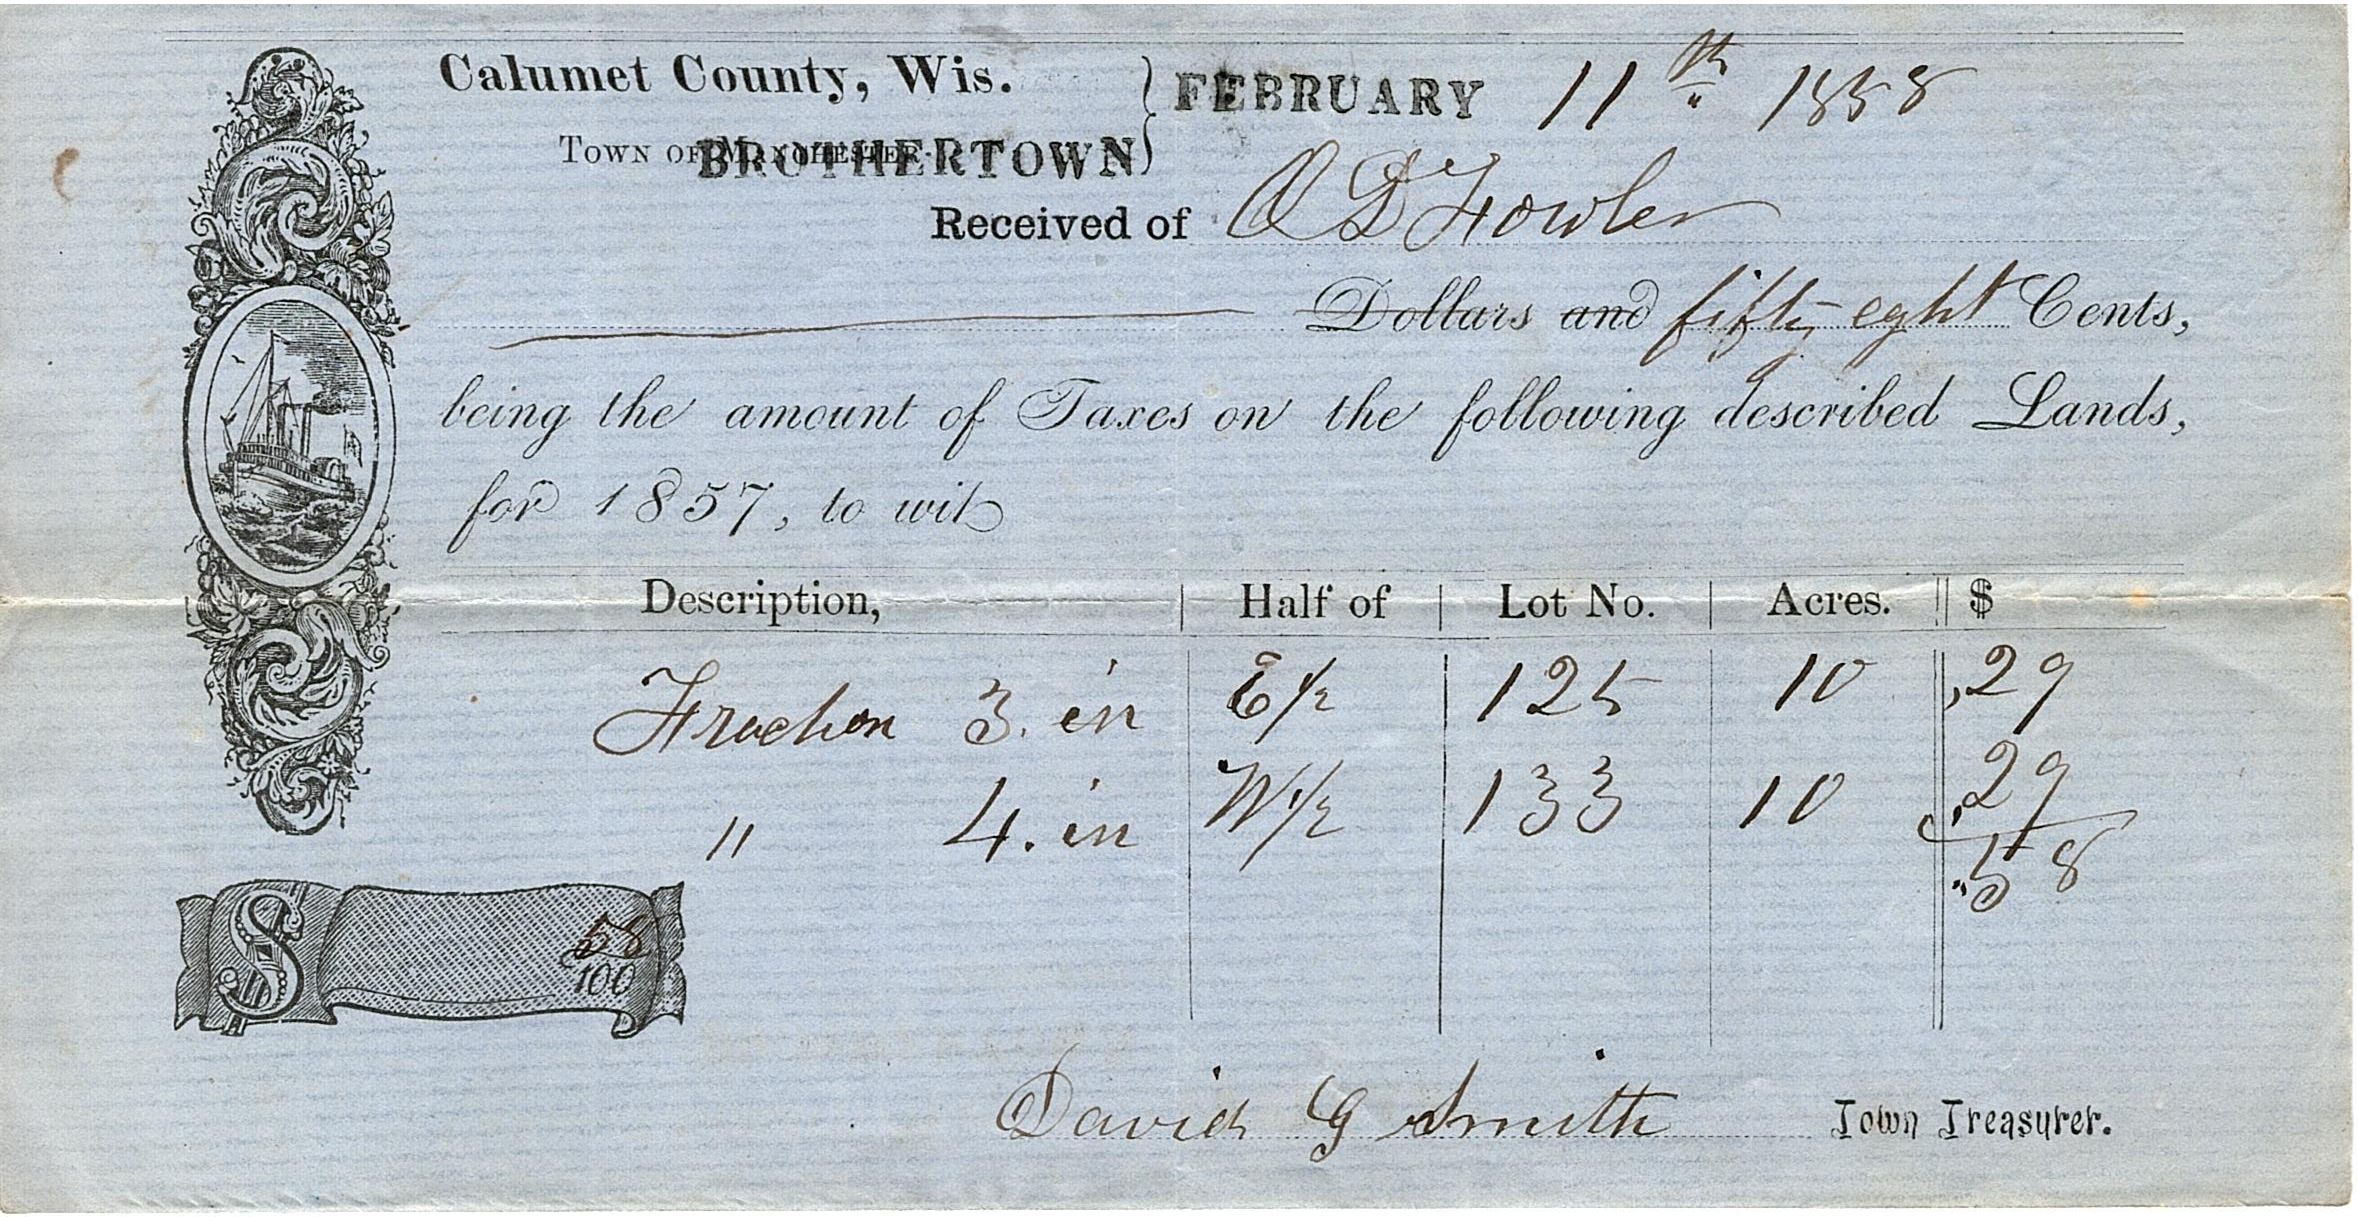 Calumet County, Wis. } FEBRUARY 11th 1858
TOWN OF MANCHESTER BROTHERTOWN
Received of O D Fowler
Dollars and fifty eght Cents,
being the amount of Taxes on the following described Lands,
for 1857, to wit
Description, | Half of | Lot No. | Acres. || $
Fraction 3. in E 1/2 125 10 ,29
" 4. in W 1/2 133 10 ,29
.58
$ 58/100
David G Smith Town Treasurer.